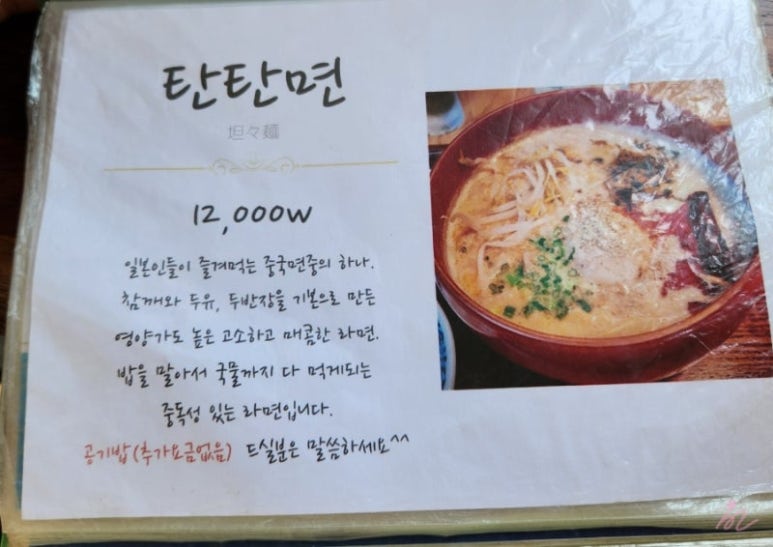 탄탄면
坦々麺
12,000w
일본인들이 즐겨먹는 중국면중의 하나.
참깨와 두유, 두반장을 기본으로 만든
영양가도 높은 고소하고 매콤한 라면.
밥을 말아서 국물까지 다 먹게되는
중독성 있는 라면입니다.
공기밥(추가요금없음) 드실분은 말씀하세요^^